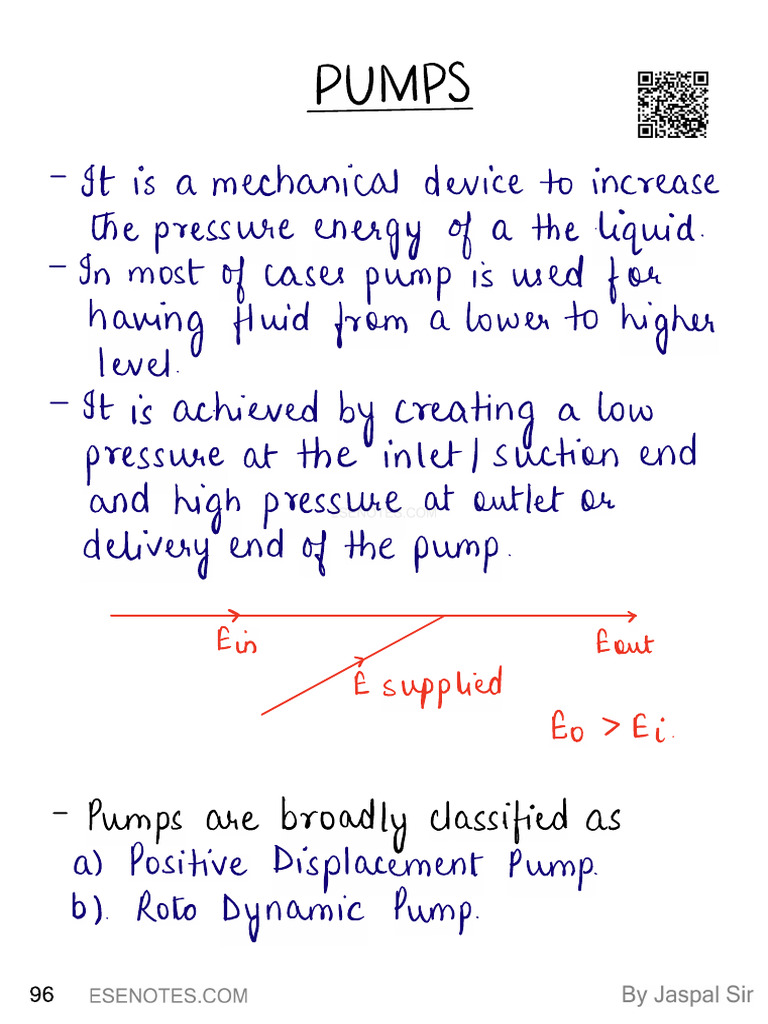 PUMPS
- It is a mechanical device to increase
the pressure energy of a the liquid.
- In most of cases pump is used for
having fluid from a lower to higher
level.
- It is achieved by creating a low
pressure at the inlet/suction end
and high pressure at outlet or
ESENOTES.COM
delivery end of the pump.
Ein
Eout
E supplied
Eo > Ei.
- Pumps are broadly classified as
a) Positive Displacement Pump.
b). Roto Dynamic Pump.
96 ESENOTES.COM By Jaspal Sir